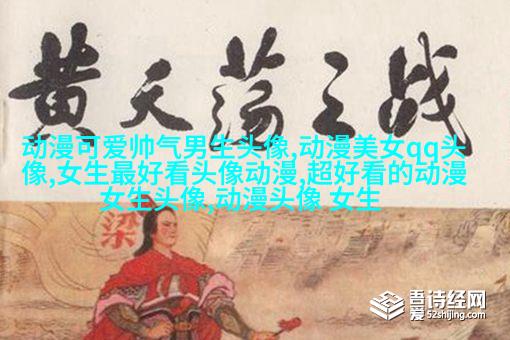 黄天荡之战
动漫可爱帅气男生头像,动漫美女qq头
像,女生最好看头像动漫,超好看的动漫
女生头像,动漫头像 女生
梁
吾爱诗经网
52shijing.com